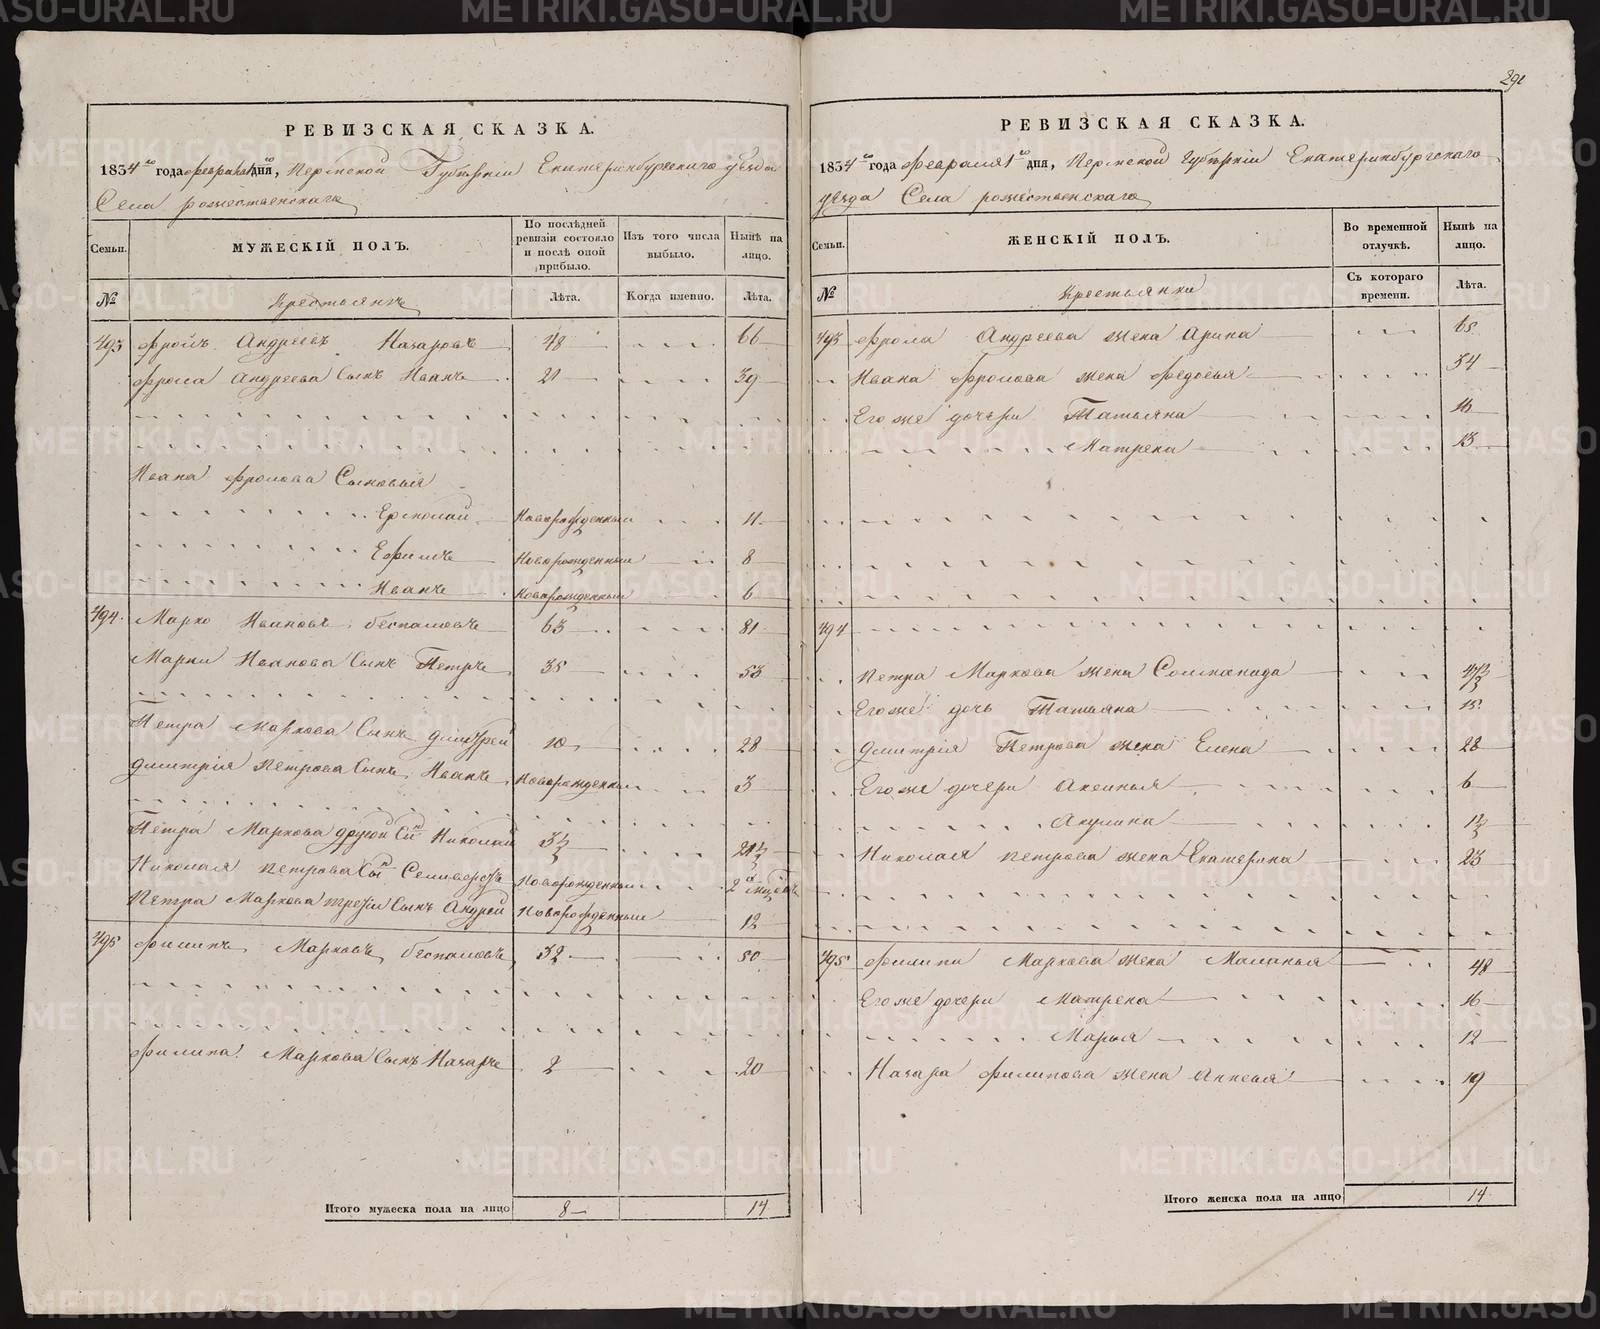 291
РЕВИЗСКАЯ СКАЗКА.
1854 го года февраля 1 го дня, Пермской Губернiи Екатеринбургскаго уезда
Села рожественскаго
Семьи.
МУЖЕСКIЙ ПОЛЪ.
По послѣдней ревизiи состояло и послѣ оной прибыло.
Изъ того числа выбыло.
Нынѣ на лицо.
№
Крестьянъ
Лѣта.
Когда именно.
Лѣта.
493 Фролъ Андреевъ Назаровъ 48 66
Фрола Андреева Сынъ Иванъ 21 39
Ивана Фролова Сыновья
Ермолай Новорожденный 11
Ефимъ Новорожденный 8
Иванъ Новорожденный 6
494 Марко Ивановъ беспаловъ 63 81
Марки Иванова Сынъ Петръ 35 53
Петра Маркова Сынъ дмитрей 10 28
дмитрiя петрова Сынъ Иванъ Новорожденный 3
Петра Маркова другой Сынъ Николай 3½ 21½
Николая петрова Сынъ Селиверстъ Новорожденный 2
Петра Маркова третiй Сынъ Андрей Новорожденный 12
495 Филипъ Марковъ беспаловъ 32 50
Филипа Маркова Сынъ Назаръ 2 20
Итого мужеска пола на лицо 8 14
РЕВИЗСКАЯ СКАЗКА.
1854 го года Февраля 1 го дня, Пермской губернiи Екатеринбургскаго
уезда Села рожественскаго
Семьи.
ЖЕНСКIЙ ПОЛЪ.
Во временной отлучкѣ.
Нынѣ на лицо.
№
Крестьянки
Съ котораго времени.
Лѣта.
493 Фрола Андреева жена Арина 65
Ивана Фролова жена Федосья 34
Его же дочери Татьяна 16
Матрена 13
494
Петра Маркова жена Соломанида
Его же дочь Татьяна 15
дмитрiя Петрова жена Елена 28
Его же дочери Аксинья 6
Акулина 1½
Николая петрова жена Екатерина 23
495 Филипа Маркова жена Маланья 48
Его же дочери Матрена 16
Марья 12
Назара Филипова жена 19
Итого женска пола на лицо 14
METRIKI.GASO-URAL.RU